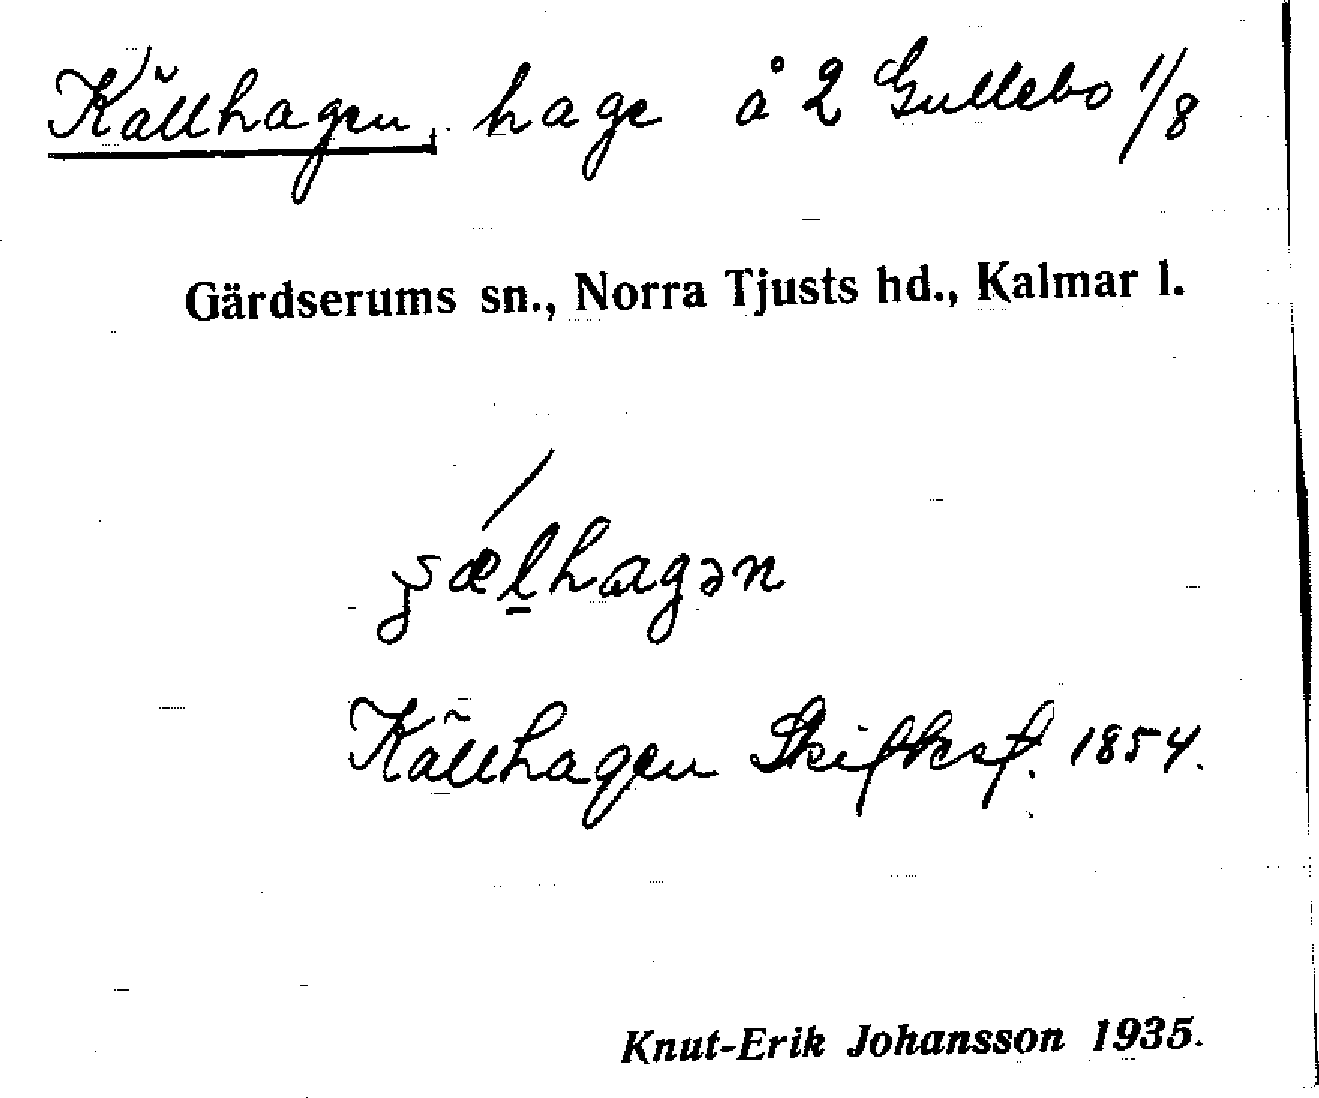 Källhagen, hage å 2 Gullebo 1/8
Gärdserums sn., Norra Tjusts hd., Kalmar l.
Källhagen Skifteskt. 1854.
Knut-Erik Johansson 1935.